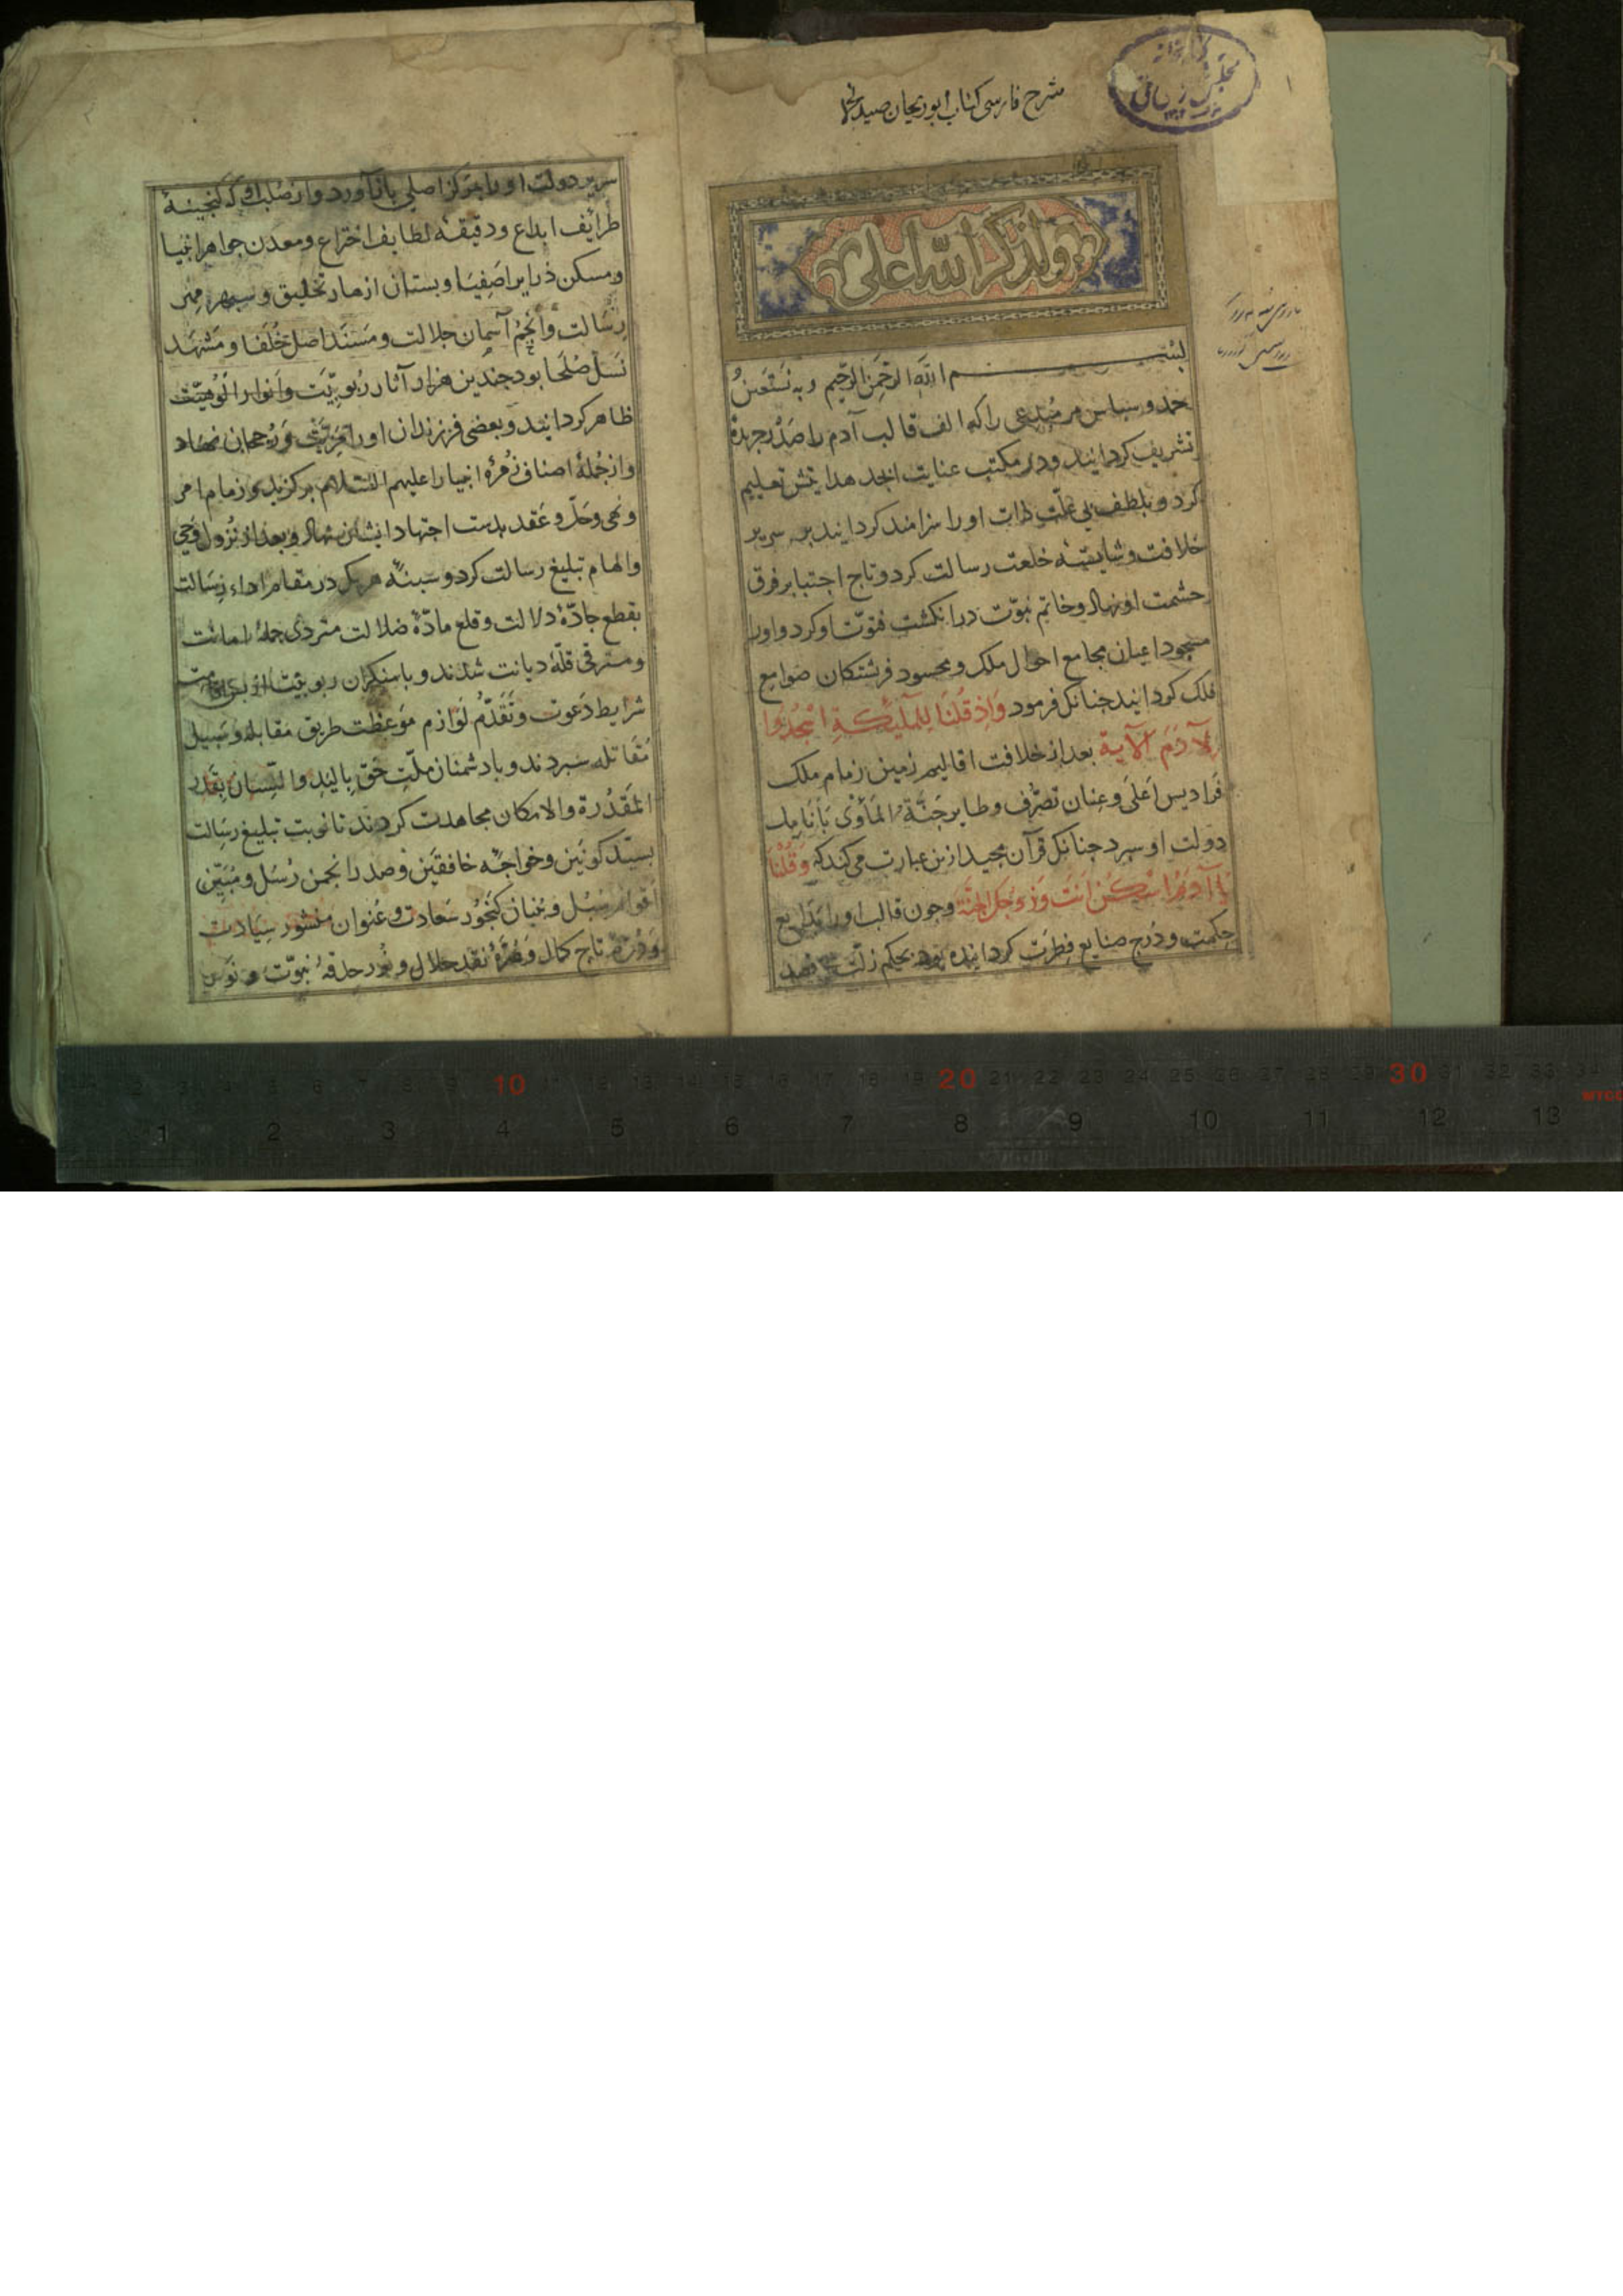 شرح فارسی کتاب ابوریحان صیدله
کتابخانه
مجلس شورای ملی
ولذکر الله اعلی
بسم الله الرحمن الرحیم وبه نستعین
حمد و سپاس مر مبدعی را که الف قالب آدم را صدر جریدهٔ
تشریف کردانید و در مکتب عنایت ابجد هدایتش تعلیم
کرد و بلطف بی علت ذات او را سزامند کردانید بر سریر
خلافت و شایستهٔ خلعت رسالت کرد و تاج اجتبا بر فرق
حشمت او نهاد و خاتم نبوّت در انکشت فتوّت او کرد و او را
مسجود اعیان مجامع احوال ملک و محسود فرشتکان صوامع
فلک کردانید جنانک فرمود وَاِذ قُلنَا لِلمَلٰیِکَةِ اسْجُدُوا
لِآدَمَ الآیة بعد از خلافت اقالیم زمین زمام ملک
فَرادیس اَعْلَی و عِنان تصرّف وطایر جَنَّةُ المَأوَی بَأنَامِل
دولت او سپرد جنانک قرآن مجید ازین عبارت می کند که وَقُلْنَا
یَا آدَمُ اسْکُنْ اَنتَ وَزَوجُکَ الجَنَّة وجون قالب او را بدایع
حِکمت و دُرج صنایع فِطرَت کردانیده بود بحکم زلّت
سریر دولت او را بمرکز اصلی باز آورد و از صلب او که کنجینهٔ
طرایف ابداع و دقیقهٔ لطایف اختراع و معدن جواهر انبیا
و مسکن ذرایر اصفیا و بستان ازهار تخلیق و سپهر مهر
رِسَالت وَاَنجُمُ آسمان جلالت و مَسنَد اصل خُلَفا و مَشهَد
نَسل صُلَحا بود جندین هزار آثار رُبوبِیَّت و اَنوار اُلوُهِیَّت
ظاهر کردانید و بعضی فرزندان او را مَزِیَّتْ وَ رُجحان نهاد
و از جُملهٔ اصناف زُمرهٔ انبیا را علیهم السلام برکزید و زمام امر
و نهی و حَلّ و عَقد بدست اجتهاد ایشان نهاد و بعد از نُزول وَحی
و الهام تبلیغ رسالت کرد و هر یک در مقام اداء رِسَالت
بقطع جادّهٔ دلالت و قلع مادّهٔ ضلالت جملهٔ امانت
و مترقی قلّهٔ دیانت شدند و با منکران ربوبیّت
شرایط دَعوت و تَقَدُّم لَوازم مَوعظت طریق مَقابله و سَبیل
مُقاتله سپردند و با دشمنان ملّتِ حَق بِالیَدِ وَ اللِّسان بِقَدرِ
المَقدُرة والامکان مجاهدت کردند تا نوبت تبلیغ رِسَالت
بسیّد کونَین و خواجهٔ خافقَین و صدر انجمن رُسُل و مُبَیّن
سُبُل و کَنجُور سَعادت و عُنوان منشور سِیَادت
وَ دُرّهٔ تاج کمال وَ نقد جلال و نُور حدقهٔ نبوّت و
10 20 30
1 2 3 4 5 6 7 8 9 10 11 12 13